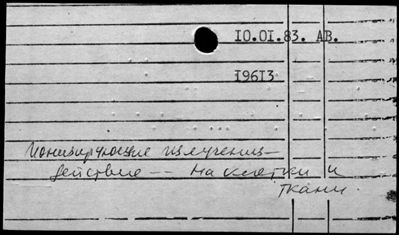 10.01.83. АВ.
19613
Ионизирующие излучения —
действие — на клетки и
ткани.